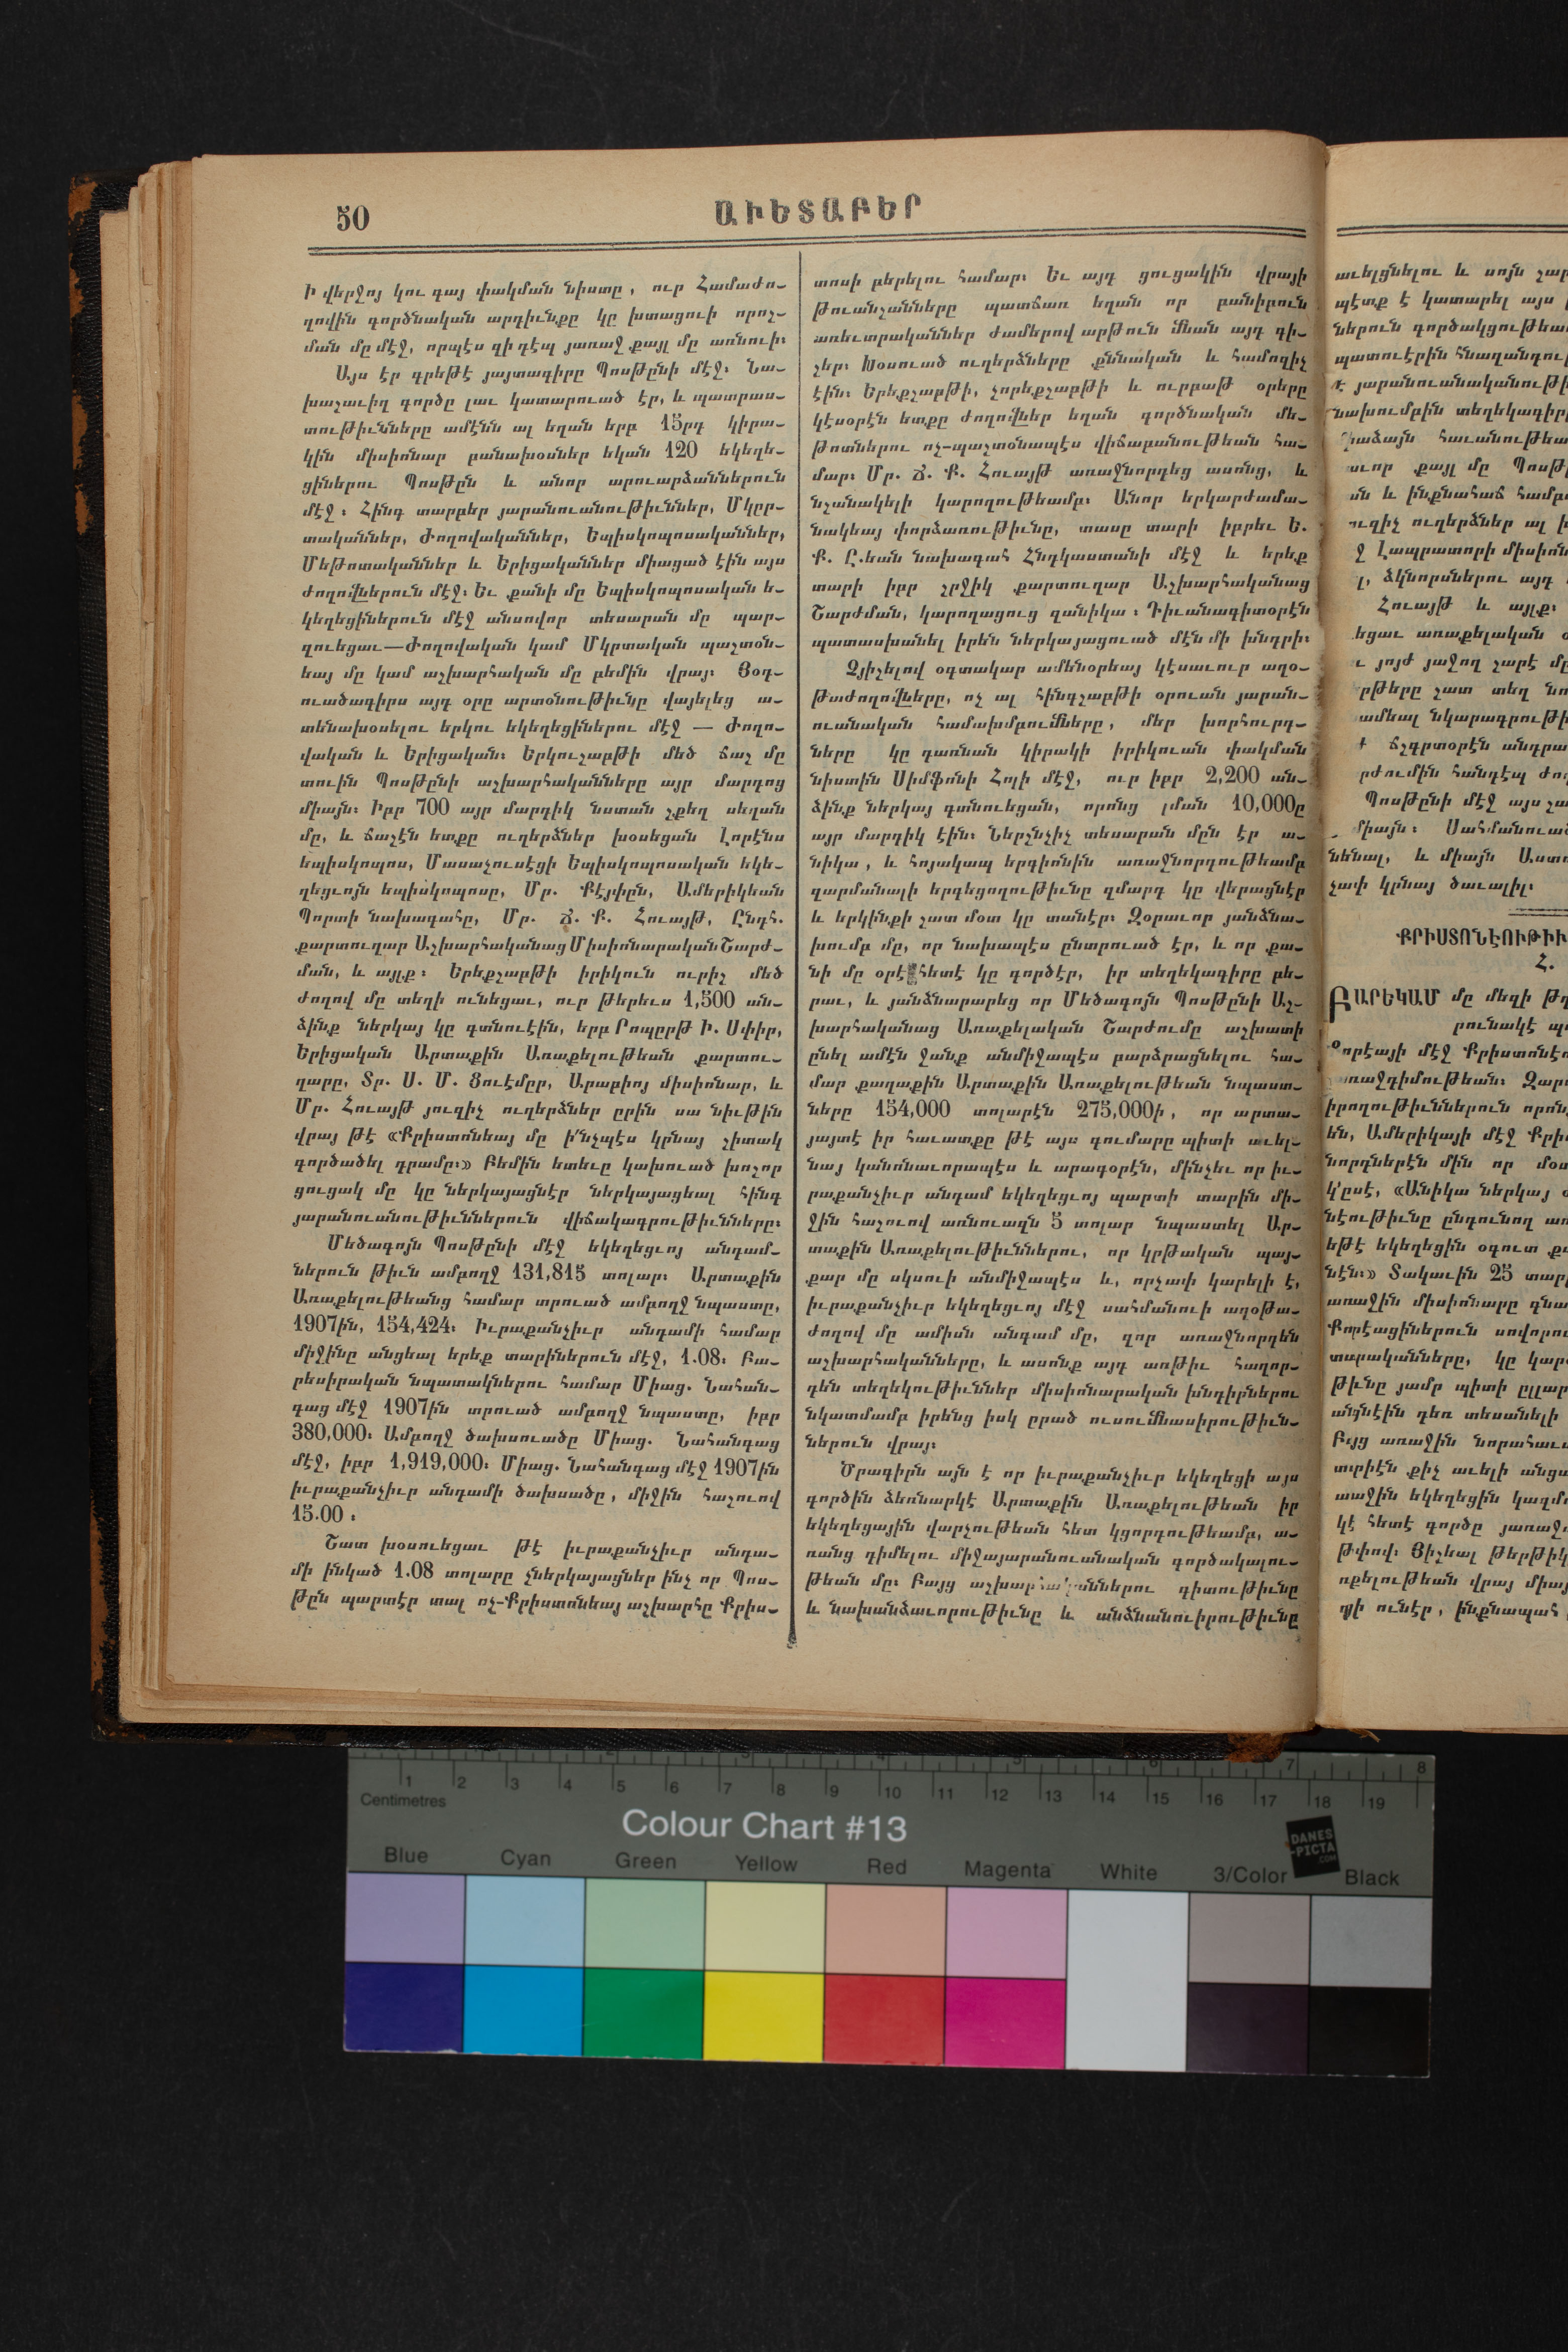 50
ԱՒԵՏԱԲԵՐ
Ի վերջոյ կու գայ փակման նիստը, ուր Համաժո-
ղովին գործնական արդիւնքը կը խտացուի որոշ-
ման մը մէջ, որպէս զի դէպ յառաջ քայլ մը առնուի։
Այս էր գրեթէ յայտագիրը Պոսթընի մէջ։ Նա-
խաշաւիղ գործը լաւ կատարուած էր, և պատրաս-
տութիւնները ամէնն ալ եղան երբ 15րդ կիրա-
կին միսիոնար բանախօսներ եկան 120 եկեղե-
ցիներու Պոսթըն և անոր արուարձաններուն
մէջ։ Հինգ տարբեր յարանուանութիւններ, Մկըր-
տականներ, Ժողովականներ, Եպիսկոպոսականներ,
Մեթոտականներ և Երիցականներ միացած էին այս
ժողովներուն մէջ։ Եւ քանի մը Եպիսկոպոսական ե-
կեղեցիներուն մէջ անսովոր տեսարան մը պար-
զուեցաւ—Ժողովական կամ Մկրտական պաշտօն-
եայ մը կամ աշխարհական մը բեմին վրայ։ Յօդ-
ուածագիրս այդ օրը արտօնութիւնը վայելեց ա-
տենախօսելու երկու եկեղեցիներու մէջ — Ժողո-
վական և Երիցական։ Երկուշաբթի մեծ ճաշ մը
տուին Պոսթընի աշխարհականները այր մարդոց
միայն։ Իբր 700 այր մարդիկ նստան շքեղ սեղան
մը, և ճաշէն ետքը ուղերձներ խօսեցան Լորէնս
եպիսկոպոս, Մասաչուսէցի Եպիսկոպոսական եկե-
ղեցւոյն եպիսկոպոսը, Մր. Քէյփըն, Ամերիկեան
Պորտի նախագահը, Մր. Ճ. Ք. Հուայթ, Ընդհ.
քարտուղար Աշխարհականաց Միսիոնարական Շարժ-
ման, և այլք։ Երեքշաբթի իրիկուն ուրիշ մեծ
ժողով մը տեղի ունեցաւ, ուր թերեւս 1,500 ան-
ձինք ներկայ կը գտնուէին, երբ Րոպըրթ Ի. Սփիր,
Երիցական Արտաքին Առաքելութեան քարտու-
ղարը, Տր. Ս. Մ. Ցուէմըր, Արաբիոյ միսիոնար, և
Մր. Հուայթ յուզիչ ուղերձներ ըրին սա նիւթին
վրայ թէ «Քրիստոնեայ մը ի՛նչպէս կրնայ շիտակ
գործածել դրամը։» Բեմին ետեւը կախուած խոշոր
ցուցակ մը կը ներկայացնէր ներկայացեալ հինգ
յարանուանութիւններուն վիճակագրութիւնները։
Մեծագոյն Պոսթընի մէջ եկեղեցւոյ անդամ-
ներուն թիւն ամբողջ 131,815 տոլար։ Արտաքին
Առաքելութեանց համար տրուած ամբողջ նպաստը,
1907ին, 154,424։ Իւրաքանչիւր անդամի համար
միջինը անցեալ երեք տարիներուն մէջ, 1.08։ Բա-
րեսիրական նպատակներու համար Միաց. Նահան-
գաց մէջ 1907ին տրուած ամբողջ նպաստը, իբր
380,000։ Ամբողջ ծախսուածը Միաց. Նահանգաց
մէջ, իբր 1,919,000։ Միաց. Նահանգաց մէջ 1907ին
իւրաքանչիւր անդամի ծախսածը, միջին հաշուով
15.00։
Շատ խօսուեցաւ թէ իւրաքանչիւր անդա-
մի ինկած 1.08 տոլարը չներկայացներ ինչ որ Պոս-
թըն պարտէր տալ ոչ-Քրիստոնեայ աշխարհը Քրիս-
տոսի բերելու համար։ Եւ այդ ցուցակին վրայի
թուանշանները պատճառ եղան որ բանիբուն
առեւտրականներ ժամերով արթուն մնան այդ գի-
շեր։ Խօսուած ուղերձները քննական և համոզիչ
էին։ Երեքշաբթի, չորեքշաբթի և ուրբաթ օրերը
կէսօրէն ետքը ժողովներ եղան գործնական մե-
թոտներու ոչ-պաշտօնապէս վիճաբանութեան հա-
մար։ Մր. Ճ. Ք. Հուայթ առաջնորդեց ասոնց, և
նշանակելի կարողութեամբ։ Անոր երկարժամա-
նակեայ փորձառութիւնը, տասը տարի իբրեւ Ե.
Ք. Ը.եան նախագահ Հնդկաստանի մէջ և երեք
տարի իբր շրջիկ քարտուղար Աշխարհականաց
Շարժման, կարողացուց զանիկա։ Դիւանագիտօրէն
պատասխանել իրեն ներկայացուած մէն մի խնդրի։
Չյիշելով օգտակար ամենօրեայ կէսաւուր աղօ-
թաժողովները, ոչ ալ հինգշաբթի օրուան յարան-
ուանական համախմբումները, մեր խորհուրդ-
ները կը դառնան կիրակի իրիկուան փակման
նիստին Սիմֆոնի Հոլի մէջ, ուր իբր 2,200 ան-
ձինք ներկայ գտնուեցան, որոնց լման 10,000ը
այր մարդիկ էին։ Ներշնչիչ տեսարան մըն էր ա-
նիկա, և հոյակապ երգիոնին առաջնորդութեամբ
զարմանալի երդեցողութիւնը զմարդ կը վերացնէր
և երկինքի շատ մօտ կը տանէր։ Զօրաւոր յանձնա-
խումբ մը, որ նախապէս ընտրուած էր, և որ քա-
նի մը օրէ հետէ կը գործէր, իր տեղեկագիրը բե-
րաւ, և յանձնարարեց որ Մեծագոյն Պոսթընի Աշ-
խարհականաց Առաքելական Շարժումը աշխատի
ընել ամէն ջանք անմիջապէս բարձրացնելու հա-
մար քաղաքին Արտաքին Առաքելութեան նպաստ-
ները 154,000 տոլարէն 275,000ի, որ արտա-
յայտէ իր հաւատքը թէ այս գումարը պիտի աւել-
նայ կանոնաւորապէս և արագօրէն, մինչեւ որ իւ-
րաքանչիւր անդամ եկեղեցւոյ պարտի տարին մի-
ջին հաշուով առնուազն 5 տոլար նպաստել Ար-
տաքին Առաքելութիւններու, որ կրթական պայ-
քար մը սկսուի անմիջապէս և, որչափ կարելի է,
իւրաքանչիւր եկեղեցւոյ մէջ սահմանուի աղօթա-
ժողով մը ամիսն անգամ մը, զոր առաջնորդեն
աշխարհականները, և ասոնք այդ առթիւ հաղոր-
դեն տեղեկութիւններ միսիոնարական խնդիրներու
նկատմամբ իրենց իսկ ըրած ուսումնասիրութիւն-
ներուն վրայ։
Ծրագիրն այն է որ իւրաքանչիւր եկեղեցի այս
գործին ձեռնարկէ Արտաքին Առաքելութեան իր
եկեղեցային վարչութեան հետ կցորդութեամբ, ա-
ռանց դիմելու միջայարանուանական գործակալու-
թեան մը։ Բայց աշխարհականներու գիտութիւնը
և նախանձաւորութիւնը և անձնանուիրութիւնը
աւելցնելու և սոյն
պէտք է կատարել այս
ներուն գործակցութեա
պատուէրին հնազանդու
է յարանուանականութի
նախումբին տեղեկագիր
հաւանութեա
քայլ մը Պոսթ
և ինքնահաճ
ուղերձներ ալ
Լապրատորի միսիոն
ձկնորսներու այդ
Հուայթ և այլք։
առաքելական
յոյժ յաջող
շատ տեղ
նկարագրութի
ճշգրտօրէն
հանդէպ
Պոսթընի մէջ այս
միայն։ Սահմանուած
նենալ, և միայն Աստո
չափ կրնայ ծաւալիլ։
ՔՐԻՍՏՈՆԷՈՒԹԻՒ
Հ.
ԲԱՐԵԿԱՄ մը մեզի
րունակէ
Քորէայի մէջ Քրիստոնէ
Զար
իրողութիւններուն որոն
են, Ամերիկայի մէջ Քրի
նորդներէն մին որ մօտ
կ'ըսէ, «Անիկա ներկայ
նէութիւնը ընդունող առ
եթէ եկեղեցին օգուտ ք
նէն։» Տակաւին 25 տար
առաջին միսիոնարը գնա
Քորէացիներուն սովորու
տարականները, կը կար
թիւնը յամր պիտի ըլլար
անցնէին դեռ տեսանելի
Բայց առաջին նորահաւ
տարիէն քիչ աւելի անցա
առջին եկեղեցին կազմ
կէ հետէ գործը յառաջ
թփով։ Յիշեալ թերթիկ
ռքելութեան վրայ միայ
ունէր, ինքնապահ
Centimetres
1 2 3 4 5 6 7 8 9 10 11 12 13 14 15 16 17 18 19
Colour Chart #13
DANES
-PICTA
.COM
Blue Cyan Green Yellow Red Magenta White 3/Color Black